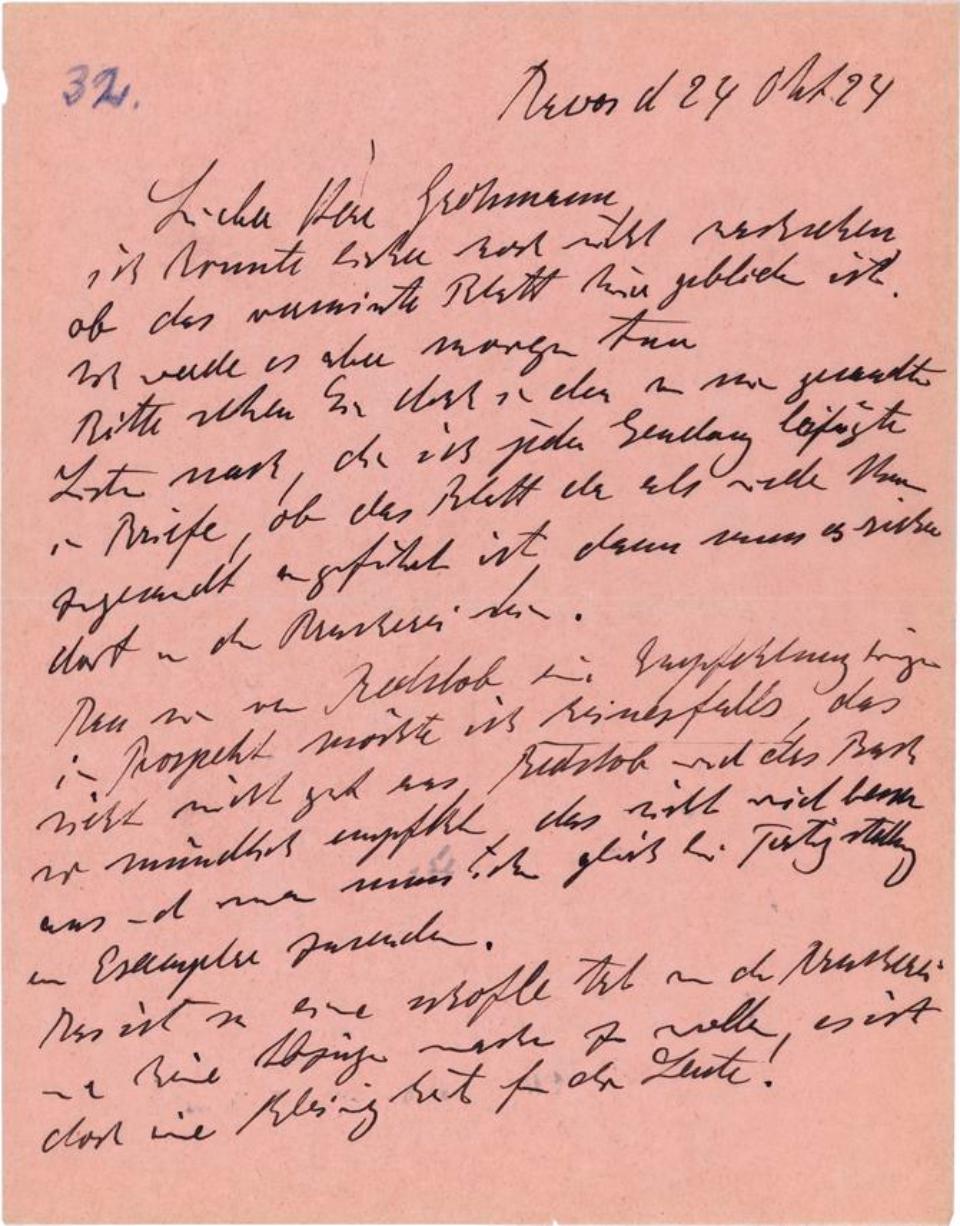 32.
Davos d 24 Okt. 24
Lieber Herr Grohmann
ich konnte bisher noch nicht nachsehen
ob das vermisste Blatt hier geblieben ist.
Ich werde es aber morgen tun
Bitte sehen Sie doch in den von mir gesandten
Listen nach, die ich jeder Sendung beifügte
in Briefe, ob das Blatt da als Ihnen
zugesandt angeführt ist, dann muss es sicher
dort in der Druckerei sein.
Redslob eine Empfehlung
im Prospekt möchte ich keinesfalls, das
sieht nicht gut aus, Redslob wird das Buch
so mündlich empfehlen, das sieht viel besser
aus und man muss ihm gleich bei Fertigstellung
ein Exemplar zusenden.
Das ist ja eine schofle Art von der Druckerei
keine Abzüge machen zu wollen, es ist
doch eine Kleinigkeit für die Leute!